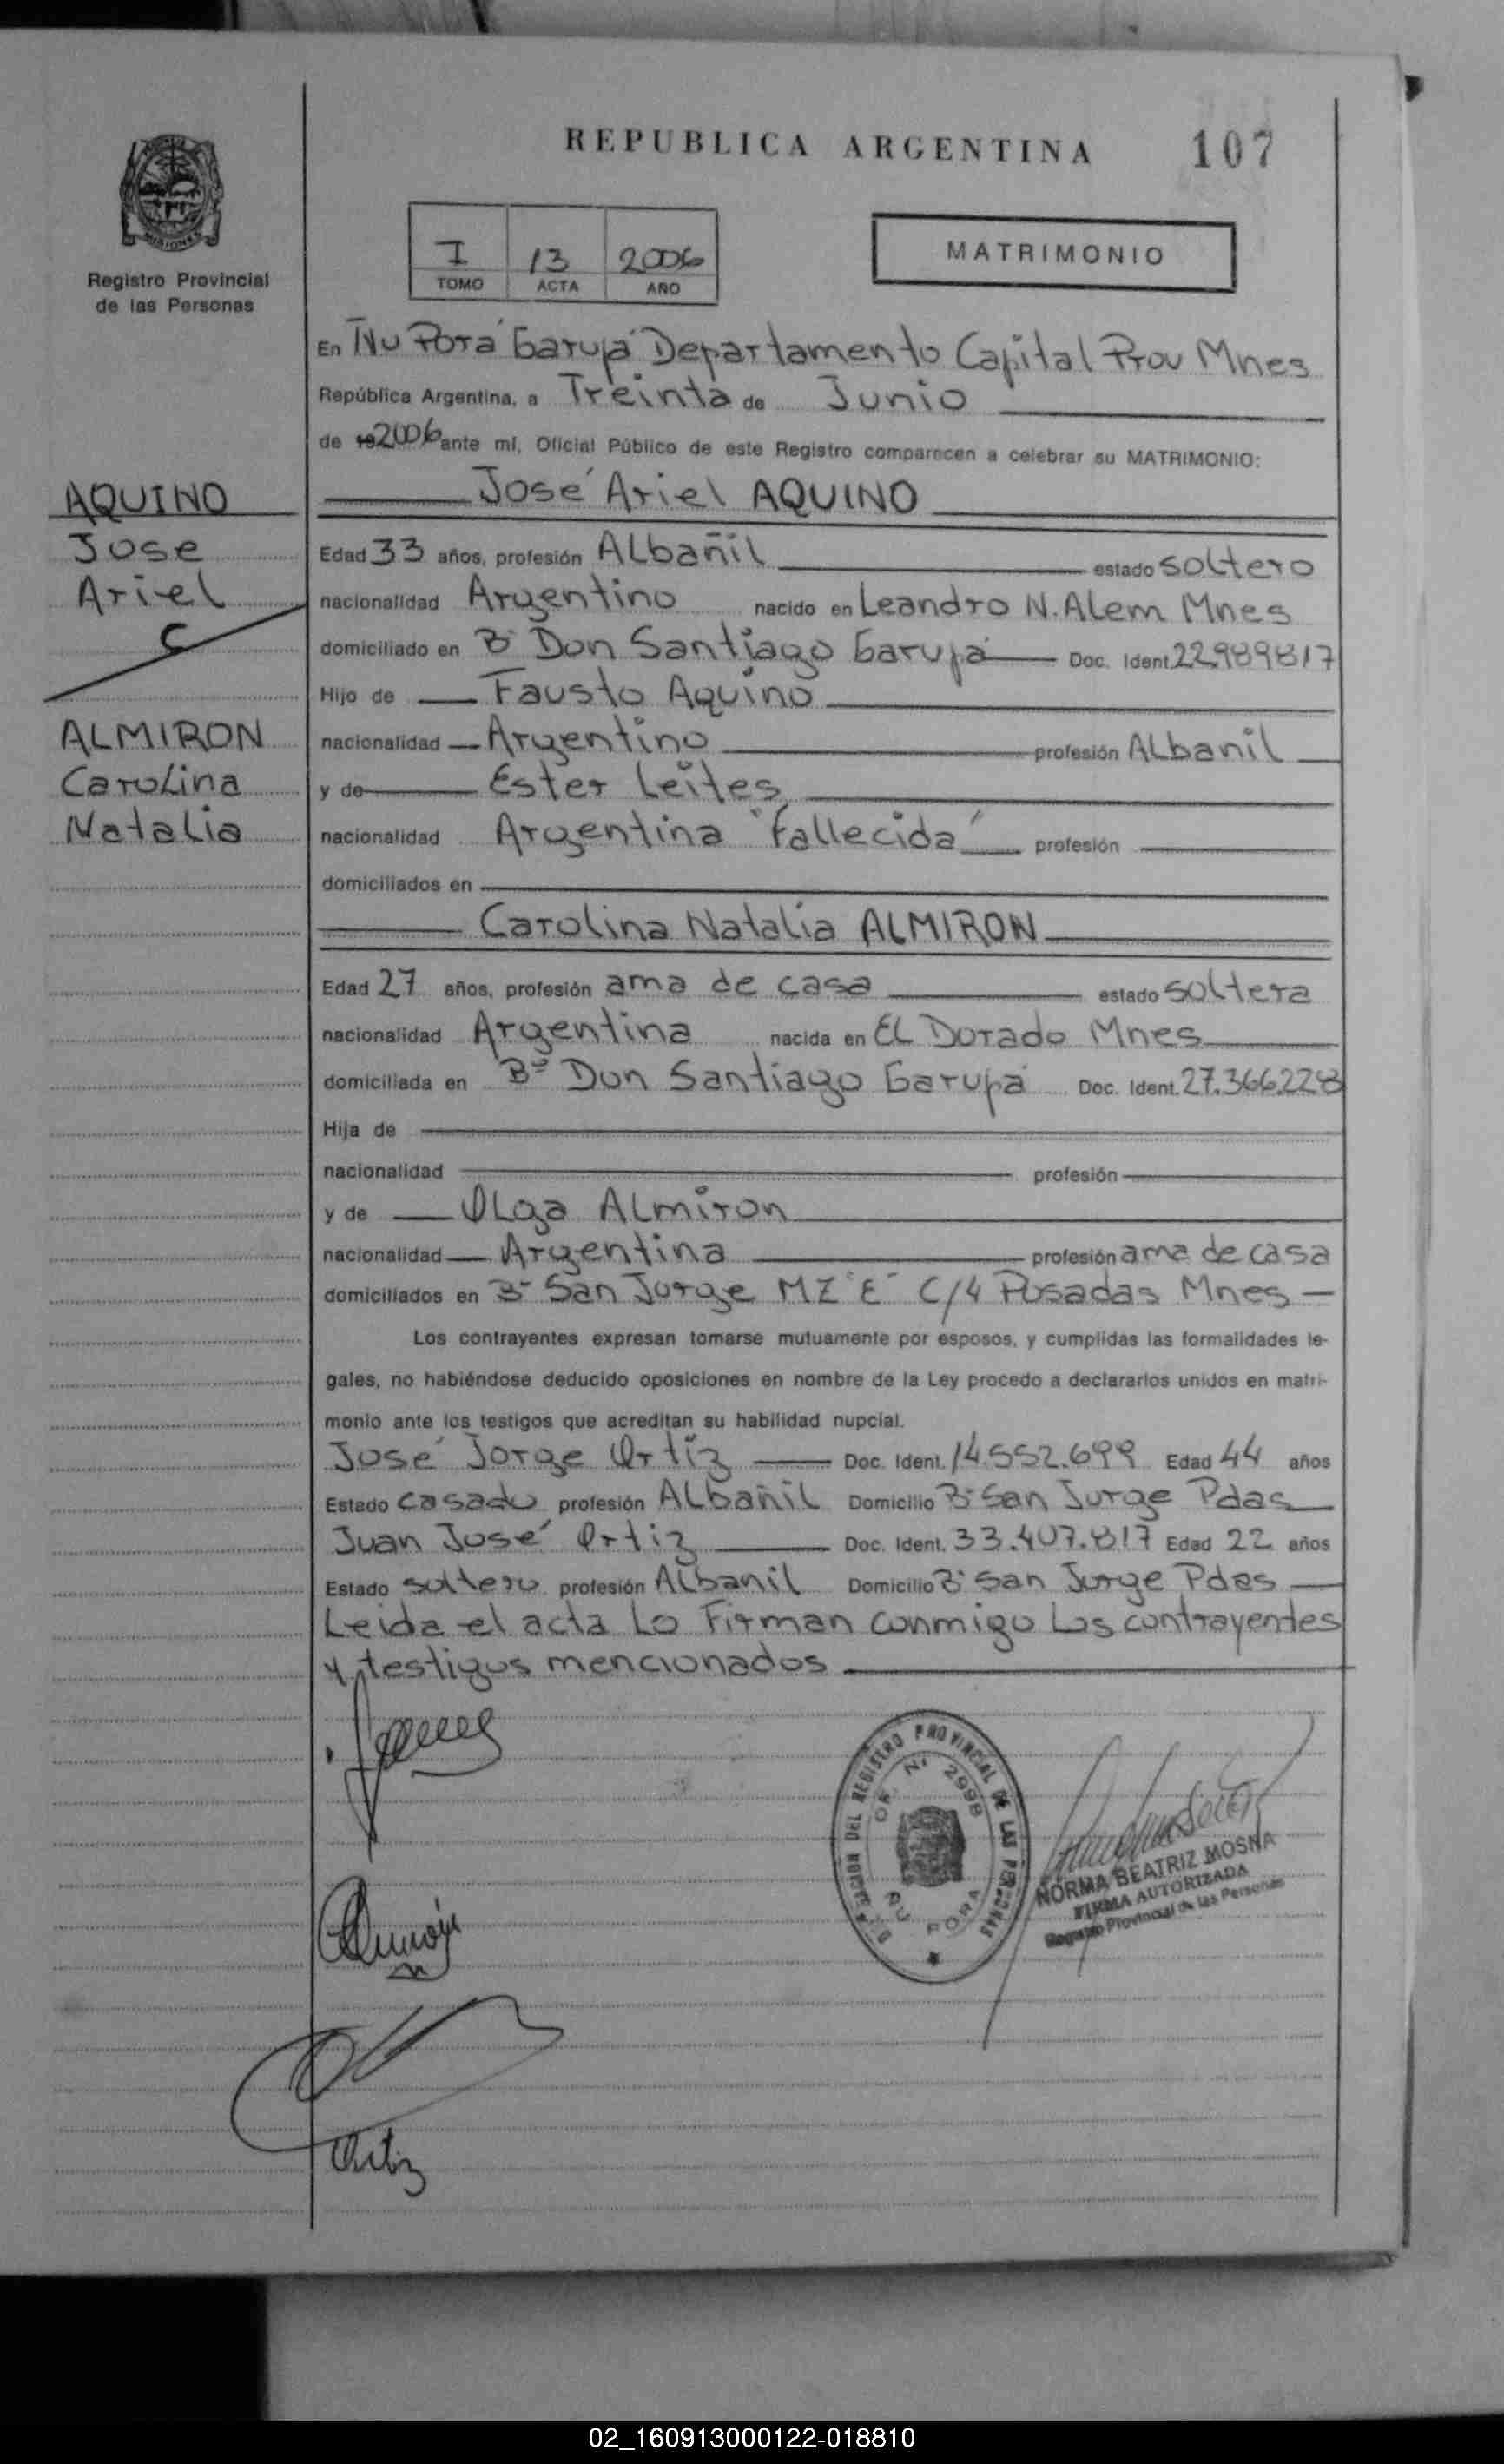 REPUBLICA ARGENTINA 107
MISIONES
Registro Provincial
de las Personas
I 13 2006
TOMO ACTA AÑO
MATRIMONIO
En Ñu Porá Garupá Departamento Capital Prov Mnes
República Argentina, a Treinta de Junio
de 19 2006 ante mí, Oficial Público de este Registro comparecen a celebrar su MATRIMONIO:
AQUINO
Jose
Ariel
C
ALMIRON
Carolina
Natalia
José Ariel AQUINO
Edad 33 años, profesión Albañil estado soltero
nacionalidad Argentino nacido en Leandro N. Alem Mnes
domiciliado en Bº Don Santiago Garupá Doc. Ident. 22.989817
Hijo de Fausto Aquino
nacionalidad Argentino profesión Albanil
y de Ester Leites
nacionalidad Argentina "Fallecida" profesión
domiciliados en
Carolina Natalia ALMIRON
Edad 27 años, profesión ama de casa estado soltera
nacionalidad Argentina nacida en El Dorado Mnes
domiciliada en Bº Don Santiago Garupá Doc. Ident. 27.366.228
Hija de
nacionalidad profesión
y de Olga Almiron
nacionalidad Argentina profesión ama de casa
domiciliados en Bº San Jorge MZ "E" C/4 Posadas Mnes
Los contrayentes expresan tomarse mutuamente por esposos, y cumplidas las formalidades le-
gales, no habiéndose deducido oposiciones en nombre de la Ley procedo a declararlos unidos en matri-
monio ante los testigos que acreditan su habilidad nupcial.
José Jorge Ortiz Doc. Ident. 14.552.699 Edad 44 años
Estado casado profesión Albañil Domicilio Bº San Jorge Pdas
Juan José Ortiz Doc. Ident. 33.407.817 Edad 22 años
Estado soltero profesión Albanil Domicilio Bº San Jorge Pdas
Leida el acta Lo Firman conmigo Los contrayentes
y testigos mencionados
DIRECCION DEL REGISTRO PROVINCIAL DE LAS PERSONAS
OF. Nº 2998
ÑU PORA
NORMA BEATRIZ MOSNA
FIRMA AUTORIZADA
Registro Provincial de las Personas
Ortiz
02_160913000122-018810